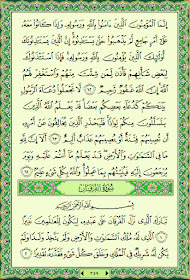 إِنَّمَا الْمُؤْمِنُونَ الَّذِينَ آمَنُوا بِاللَّهِ وَرَسُولِهِ وَإِذَا كَانُوا مَعَهُ
عَلَىٰ أَمْرٍ جَامِعٍ لَّمْ يَذْهَبُوا حَتَّىٰ يَسْتَأْذِنُوهُ إِنَّ الَّذِينَ يَسْتَأْذِنُونَكَ
أُولَٰئِكَ الَّذِينَ يُؤْمِنُونَ بِاللَّهِ وَرَسُولِهِ فَإِذَا اسْتَأْذَنُوكَ
لِبَعْضِ شَأْنِهِمْ فَأْذَن لِّمَن شِئْتَ مِنْهُمْ وَاسْتَغْفِرْ لَهُمُ
اللَّهَ إِنَّ اللَّهَ غَفُورٌ رَّحِيمٌ ٦٢ لَّا تَجْعَلُوا دُعَاءَ الرَّسُولِ
بَيْنَكُمْ كَدُعَاءِ بَعْضِكُم بَعْضًا قَدْ يَعْلَمُ اللَّهُ الَّذِينَ
يَتَسَلَّلُونَ مِنكُمْ لِوَاذًا فَلْيَحْذَرِ الَّذِينَ يُخَالِفُونَ عَنْ أَمْرِهِ
أَن تُصِيبَهُمْ فِتْنَةٌ أَوْ يُصِيبَهُمْ عَذَابٌ أَلِيمٌ ٦٣ أَلَا إِنَّ لِلَّهِ
مَا فِي السَّمَاوَاتِ وَالْأَرْضِ قَدْ يَعْلَمُ مَا أَنتُمْ عَلَيْهِ وَيَوْمَ
يُرْجَعُونَ إِلَيْهِ فَيُنَبِّئُهُم بِمَا عَمِلُوا وَاللَّهُ بِكُلِّ شَيْءٍ عَلِيمٌ ٦٤
سُورَةُ الْفُرْقَانِ
بِسْمِ اللَّهِ الرَّحْمَٰنِ الرَّحِيمِ
تَبَارَكَ الَّذِي نَزَّلَ الْفُرْقَانَ عَلَىٰ عَبْدِهِ لِيَكُونَ لِلْعَالَمِينَ نَذِيرًا ١
الَّذِي لَهُ مُلْكُ السَّمَاوَاتِ وَالْأَرْضِ وَلَمْ يَتَّخِذْ وَلَدًا وَلَمْ
يَكُن لَّهُ شَرِيكٌ فِي الْمُلْكِ وَخَلَقَ كُلَّ شَيْءٍ فَقَدَّرَهُ تَقْدِيرًا ٢
٣٥٩